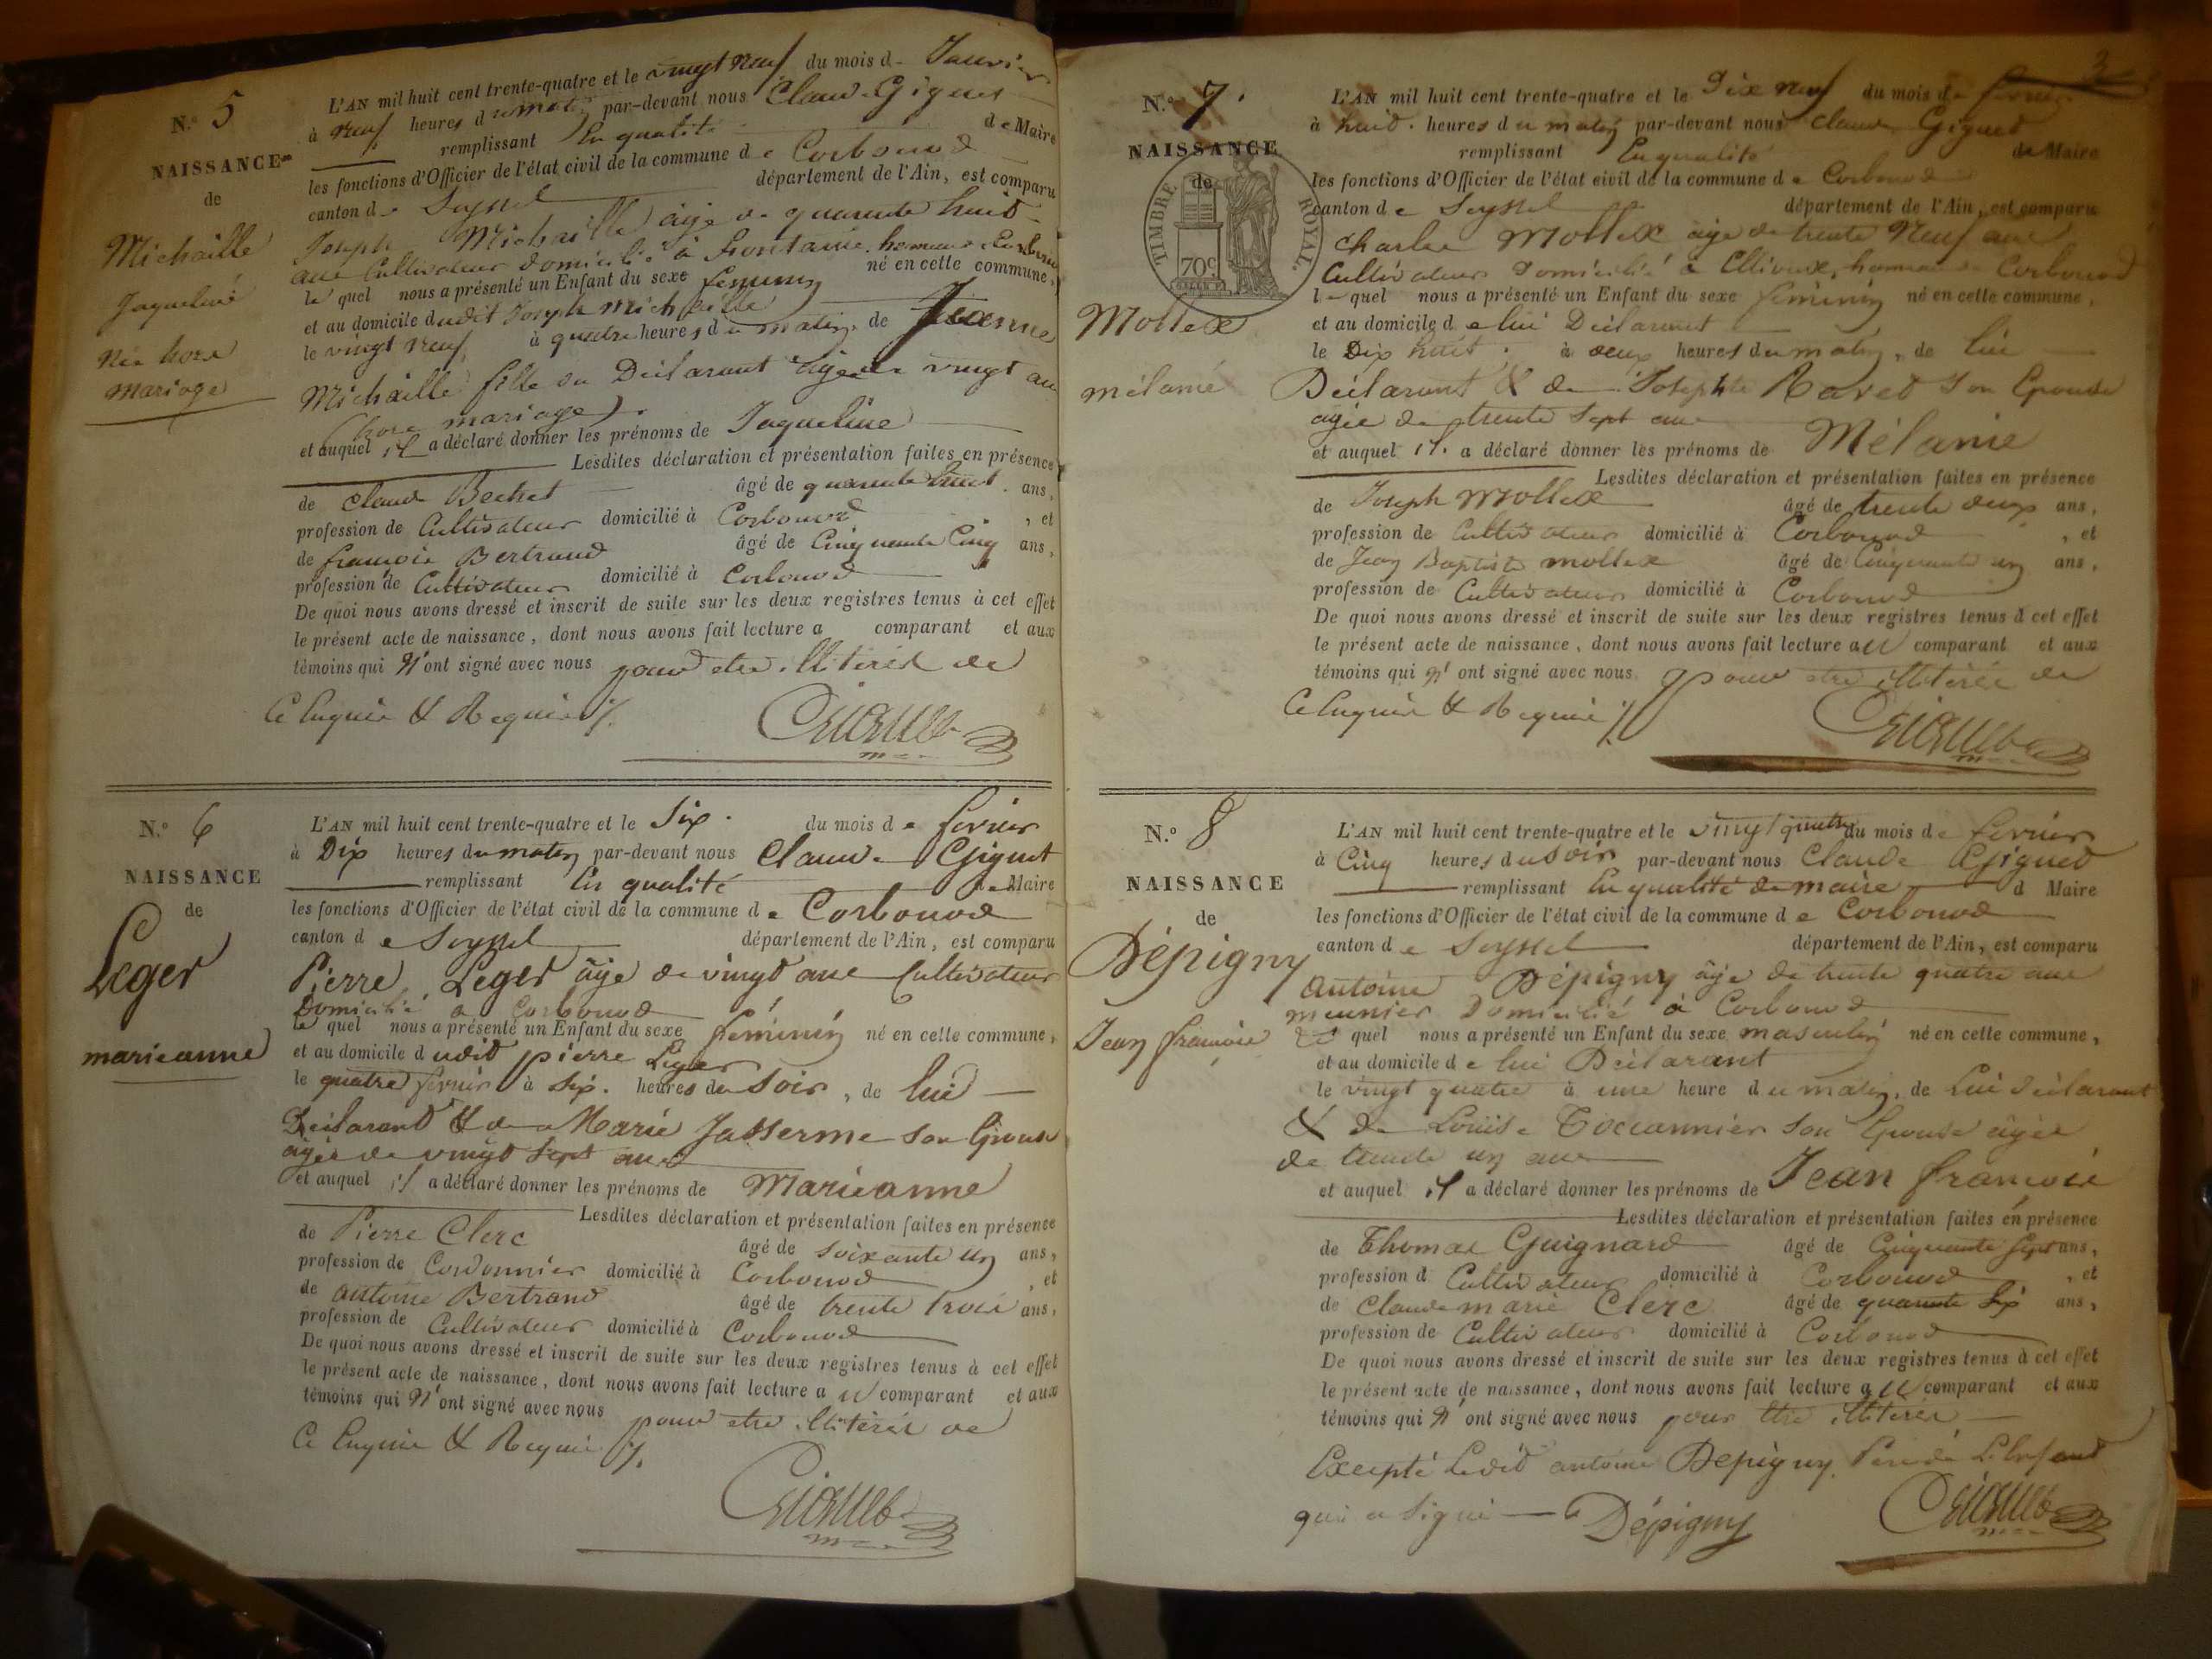 N.o 5
NAISSANCE
de
Michaille
Jaqueline
Née hors
mariage
L'AN mil huit cent trente-quatre et le vingt neuf du mois d Janvier
à neuf heures du matin par-devant nous Claude Giguet
remplissant En qualité de Maire
les fonctions d'Officier de l'état civil de la commune de Corbonod
canton de Seyssel département de l'Ain, est comparu
Joseph Michaille âgé de quarante huit
ans Cultivateur domicilié à fontaine hameau
le quel nous a présenté un Enfant du sexe feminin né en cette commune,
et au domicile dudit Joseph Michaille
le vingt neuf à quatre heures du matin, de Jeanne
Michaille fille du Déclarant âgée de vingt ans
(hors mariage)
et auquel il a déclaré donner les prénoms de Jaqueline
Lesdites déclaration et présentation faites en présence
de Claude Bechet âgé de quarante huit ans,
profession de Cultivateur domicilié à Corbonod, et
de françois Bertrand âgé de Cinquante Cinq ans,
profession de Cultivateur domicilié à Corbonod
De quoi nous avons dressé et inscrit de suite sur les deux registres tenus à cet effet
le présent acte de naissance, dont nous avons fait lecture a comparant et aux
témoins qui n'ont signé avec nous pour etre illitérés de
Ce Enquis & Requis
Giguet
N.o 6
NAISSANCE
de
Leger
marieanne
L'AN mil huit cent trente-quatre et le Six du mois de fevrier
à Dix heures du matin par-devant nous Claude Giguet
remplissant En qualité de Maire
les fonctions d'Officier de l'état civil de la commune de Corbonod
canton de Seyssel département de l'Ain, est comparu
Pierre Leger âgé de vingt ans Cultivateur
Domicilié a Corbonod
le quel nous a présenté un Enfant du sexe féminin né en cette commune,
et au domicile dudit pierre Leger
le quatre fevrier à Six heures du Soir, de lui
Déclarant & de Marie Jasserme son Epouse
âgée de vingt sept ans
et auquel il a déclaré donner les prénoms de Marieanne
Lesdites déclaration et présentation faites en présence
de Pierre Clerc âgé de soixante un ans,
profession de Cordonnier domicilié à Corbonod, et
de antoine Bertrand âgé de trente trois ans,
profession de Cultivateur domicilié à Corbonod
De quoi nous avons dressé et inscrit de suite sur les deux registres tenus à cet effet
le présent acte de naissance, dont nous avons fait lecture au comparant et aux
témoins qui n'ont signé avec nous pour etre illitérés de
Ce Enquis & Requis
Giguet
3
N.o 7.
NAISSANCE
de
TIMBRE ROYAL.
70c
Mollex
mélanie
L'AN mil huit cent trente-quatre et le Dix neuf du mois de fevrier
à huit heures du matin par-devant nous Claude Giguet
remplissant En qualité de Maire
les fonctions d'Officier de l'état civil de la commune de Corbonod
canton de Seyssel département de l'Ain, est comparu
Charles Mollex âgé de trente Neuf ans
Cultivateur Domicilié à hameau de Corbonod
le quel nous a présenté un Enfant du sexe féminin né en cette commune,
et au domicile de lui Déclarant
le Dix huit à deux heures du matin, de lui
Déclarant & de Josephte Ravet son Epouse
âgée de trente Sept ans
et auquel il a déclaré donner les prénoms de Mélanie
Lesdites déclaration et présentation faites en présence
de Joseph Mollex âgé de trente deux ans,
profession de Cultivateur domicilié à Corbonod, et
de Jean Baptiste mollex âgé de Cinquante un ans,
profession de Cultivateur domicilié à Corbonod
De quoi nous avons dressé et inscrit de suite sur les deux registres tenus à cet effet
le présent acte de naissance, dont nous avons fait lecture au comparant et aux
témoins qui n'ont signé avec nous pour etre illitérés de
Ce Enquis & Requis
Giguet
N.o 8
NAISSANCE
de
Dépigny
Jean françois
L'AN mil huit cent trente-quatre et le vingt quatre du mois de fevrier
à Cinq heures du soir par-devant nous Claude Giguet
remplissant En qualité de maire d Maire
les fonctions d'Officier de l'état civil de la commune de Corbonod
canton de Seyssel département de l'Ain, est comparu
antoine Dépigny âgé de trente quatre ans
meunier Domicilié à Corbonod
le quel nous a présenté un Enfant du sexe masculin né en cette commune,
et au domicile de lui Déclarant
le vingt quatre à une heure du matin, de Lui déclarant
& de Louise Toccannier son Epouse âgée
de trente un ans
et auquel il a déclaré donner les prénoms de Jean françois
Lesdites déclaration et présentation faites en présence
de Thomas Guignard âgé de Cinquante Sept ans,
profession d Cultivateur domicilié à Corbonod, et
de Claude marie Clerc âgé de quarante Six ans,
profession de Cultivateur domicilié à Corbonod
De quoi nous avons dressé et inscrit de suite sur les deux registres tenus à cet effet
le présent acte de naissance, dont nous avons fait lecture au comparant et aux
témoins qui n'ont signé avec nous pour être illitérés
Excepté Ledit antoine Depigny Père de L'Enfant
qui a signé Dépigny
Giguet